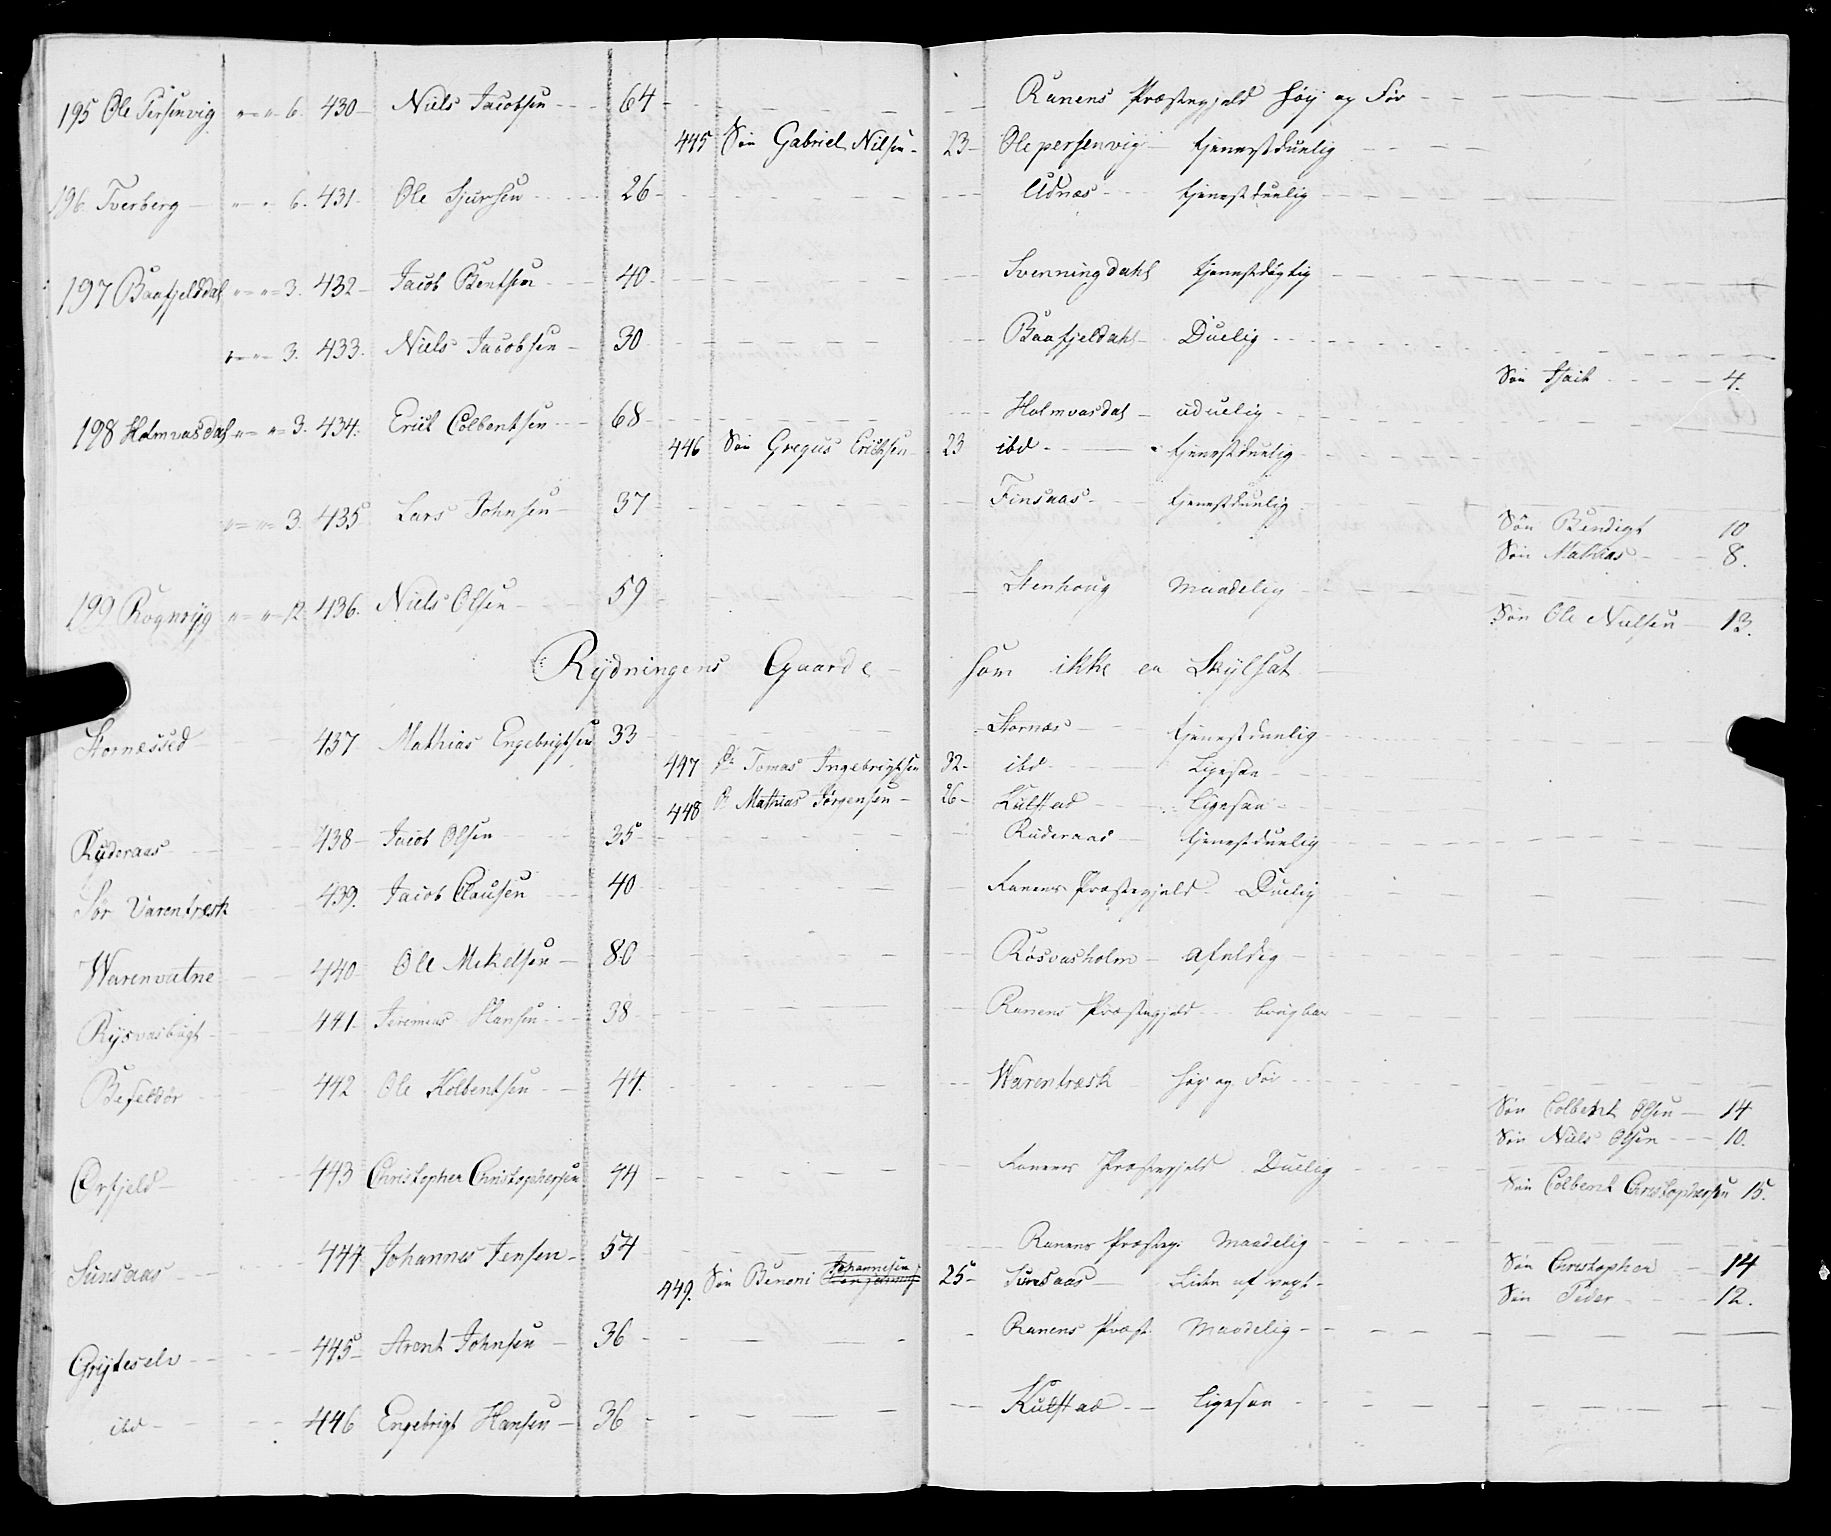 195 Ole Persenvig " " 6. 430 Niels Jacobsen 64 Ranens Præstegjeld Høy og Før
445 Søn Gabriel Nilsen 23 Olepersenvig tjenestduelig
196. Tverberg " " 6. 431 Ole Sjursen 26 Udnæs tjenestduelig
197 Baafjelddal " " 3. 432 Jacob Bentsen 40 Svenningdahl tjenestdygtig
" " 3. 433. Niels Jacobsen 30 Baafjeldahl Duelig
Søn 4.
198 Holmvasdal " " 3. 434. Erick Colbentsen 68 Holmvasdal uduelig
446 Søn Gregus Erichsen 23 ibd tjenestduelig
" " 3. 435 Lars Johnsen 37 Finsaas tjenestduelig
Søn Bendigt 10
Søn Mathias 8.
199 Rognryg " " 12. 436. Niels Olsen 59 Stenhoug Maadelig
Søn Ole Nielsen 13.
Rydningens Gaarde som ikke er Skylsat
Stornæssed 437 Mathias Engebrigtsen 33 Stornæs tjenestduelig
447 Tomas Ingebrigtsen 32 ibd Ligesaa
448 Mathias Jørgensen 26 Kulstad Ligesaa
Ryderaas 438 Jacob Olsen 35 Ruderaas tjenestduelig
Sør Varentræsk 439. Jacob Clausen 40 Ranens Præstegjeld Duelig
Warenvatne 440 Ole Mekelsen 80 Røsvasholm Afeldig
Rysvasbugt 441. Jeremias Hansen 38 Ranens Præstegjeld brugbar
442 Ole Kolbentsen 44. Warentræsk Høy og Før
Søn Colbent Olsen 14
Søn Niels Olsen 10.
Ørfjeld 443 Christopher Christophersen 44 Ranens Præstegjeld Duelig
Søn Colbent Christophersen 15.
Sunsaas 444 Johannes Jensen 54 Ranens Præsteg: Maadelig
Søn Christopher 14
449. Søn Benoni Johannesen 25 Sunsaas Liden af vext
Søn Peder 12.
Gryteselv 445 Arent Johnsen 36 Ranens Præst. Maadelig
ibd 446 Engebrigt Hansen 36 Kulstad Ligesaa